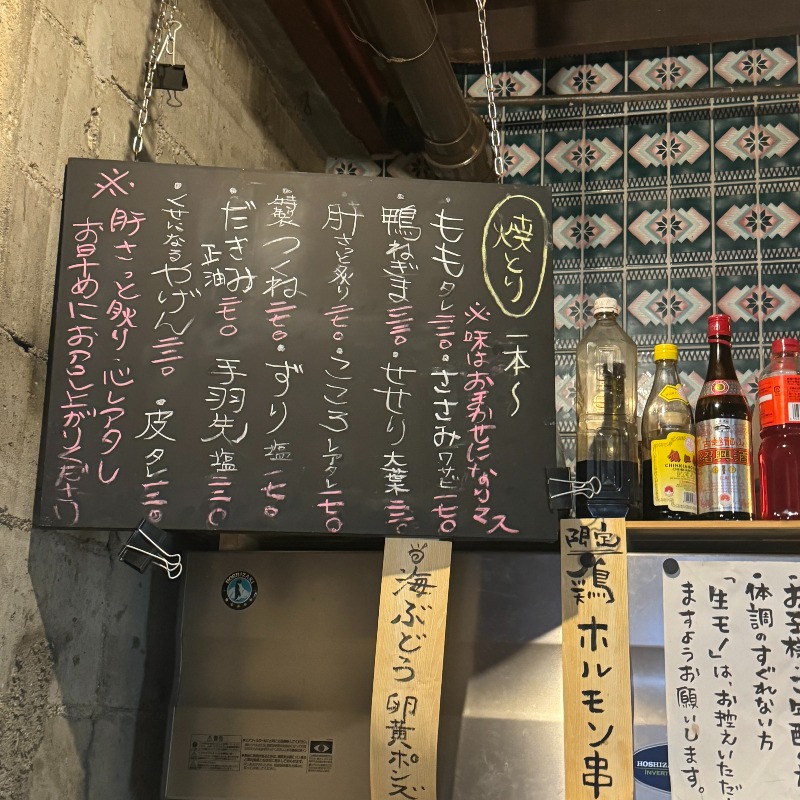 焼とり 一本〜
※味はおまかせになりマス
・ももタレ二二〇・ささみワサビ一七〇
・鴨ねぎま三三〇・せせり大葉
・肝さっと炙り一七〇・こころレアタレ一七〇
・特製つくね二七〇・ずり塩一七〇
・だきみ正油二七〇 手羽先塩二二〇
・くせになるやげん二二〇・皮タレ
※肝さっと炙り・心レアタレ
お早めにお召し上がりください
限定鶏ホルモン串
海ぶどう卵黄ポンズ
・体調のすぐれない方
「生モノ」は、お控えいただ
ますようお願いします。
HOSHIZAKI
HOSHIZAKI
INVERTER